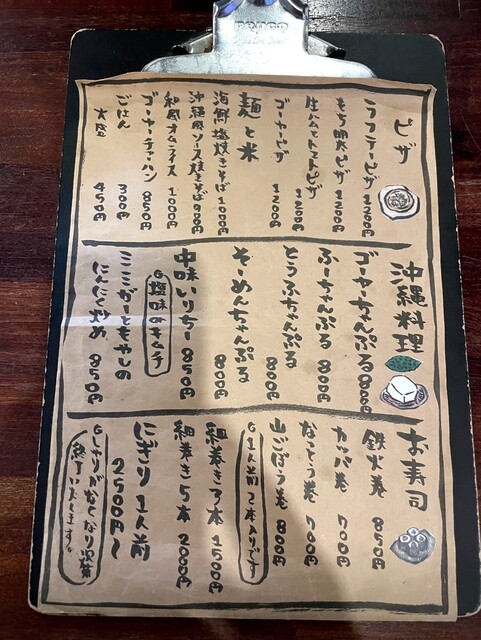 ピザ
ラフテーピザ 1200円
もち明太ピザ 1200円
生ハムとトマトピザ 1200円
ゴーヤーピザ 1200円
麺と米
海鮮塩焼きそば 1000円
沖縄風ソース焼きそば 900円
和風オムライス 1000円
ゴーヤーチャーハン 850円
ごはん 300円
大盛 450円
沖縄料理
ゴーヤーちゃんぷる 800円
ふーちゃんぷる 800円
とうふちゃんぷる 800円
そーめんちゃんぷる 800円
中味いりちー 850円
塩味のキムチ
ここがーともやしの
にんにく炒め 850円
お寿司
鉄火巻 850円
カッパ巻 700円
なっとう巻 700円
山ごぼう巻 800円
1人前2本入りです
細巻き3本 1500円
細巻き5本 2000円
にぎり1人前
2500円〜
しゃりがなくなり次第
終了いたします。